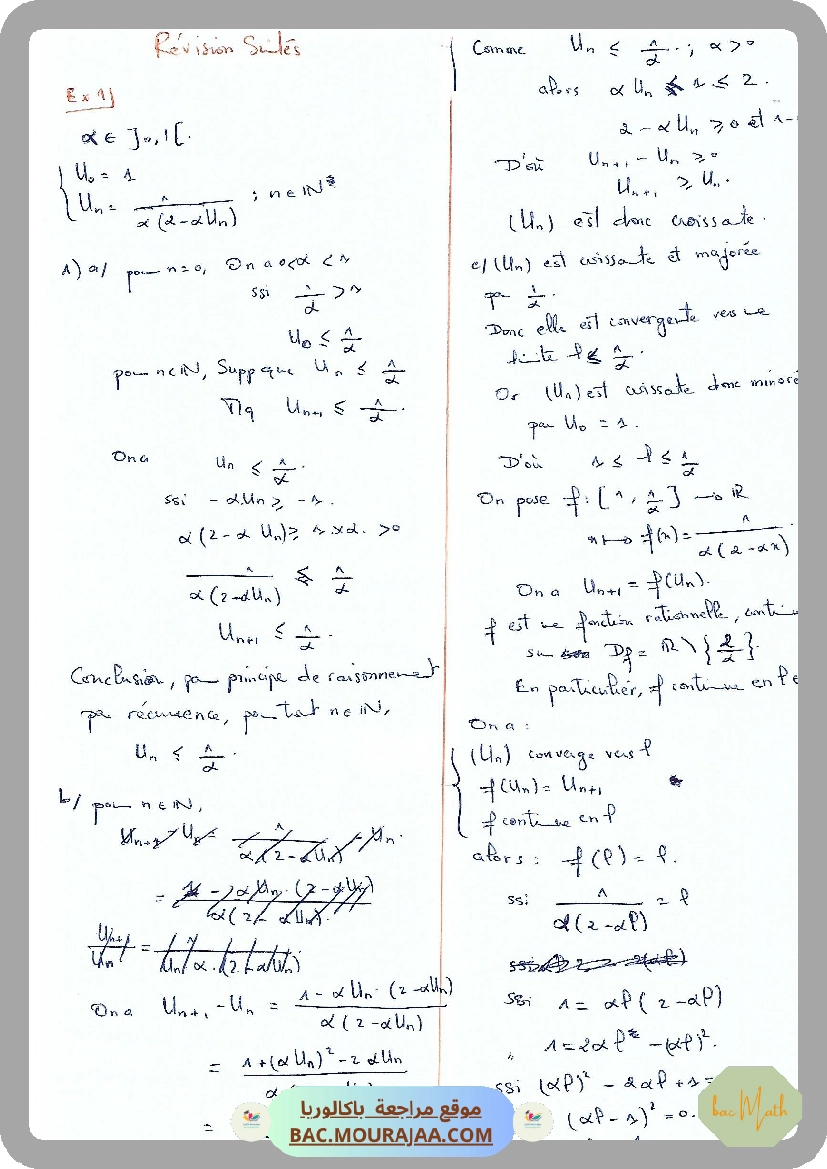 Révision Suites
Ex 1)
α ∈ ]0,1[.
U₀ = 1
Uₙ = 1 / α(2-αUₙ) ; n∈ℕ*
1) a/ pour n=0, On a 0<α<1
ssi 1/α > 1
U₀ ≤ 1/α
pour n∈ℕ, Supp que Uₙ ≤ 1/α
Mq Uₙ₊₁ ≤ 1/α.
On a Uₙ ≤ 1/α.
ssi -αUₙ ≥ -1.
α(2-αUₙ) ≥ 1×α. >0
1 / α(2-αUₙ) ≤ 1/α
Uₙ₊₁ ≤ 1/α.
Conclusion, par principe de raisonnement
par récurrence, pour tout n∈ℕ,
Uₙ ≤ 1/α.
b/ pour n∈ℕ,
On a Uₙ₊₁ - Uₙ = 1 - αUₙ·(2-αUₙ) / α(2-αUₙ)
= 1+(αUₙ)² - 2αUₙ
=
Comme Uₙ ≤ 1/α ; α>0
alors αUₙ ≤ 1 ≤ 2.
2 - αUₙ ≥ 0 et 1-
D'où Uₙ₊₁ - Uₙ ≥ 0
Uₙ₊₁ ≥ Uₙ.
(Uₙ) est donc croissante.
c/ (Uₙ) est croissante et majorée
par 1/α.
Donc elle est convergente vers une
limite ℓ ≤ 1/α.
Or (Uₙ) est croissante donc minoré
par U₀ = 1.
D'où 1 ≤ ℓ ≤ 1/α
On pose f: [1, 1/α] → ℝ
x ↦ f(x) = 1 / α(2-αx)
On a Uₙ₊₁ = f(Uₙ).
f est une fonction rationnelle, continue
sur Df = ℝ \ {2/α}.
En particulier, f continue en ℓ e
On a :
(Uₙ) converge vers ℓ
f(Uₙ) = Uₙ₊₁
f continue en ℓ
alors : f(ℓ) = ℓ.
ssi 1 / α(2-αℓ) = ℓ
ssi 1 = αℓ(2-αℓ)
1 = 2αℓ - (αℓ)².
ssi (αℓ)² - 2αℓ + 1 =
(αℓ - 1)² = 0.
موقع مراجعة باكالوريا
BAC.MOURAJAA.COM
bac Math